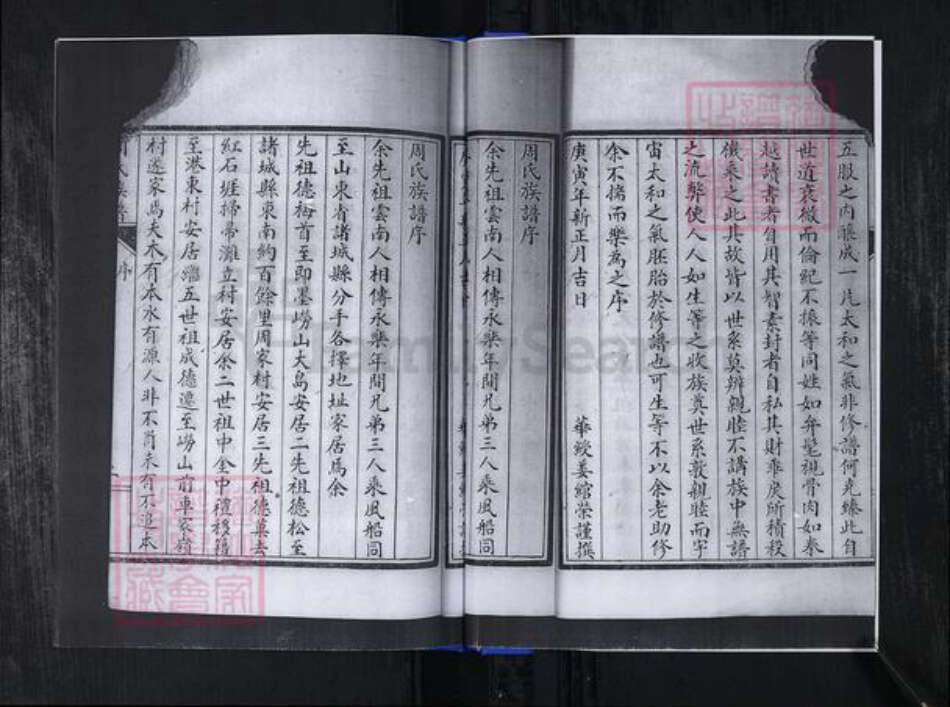 五服之內釀成一片太和之氣非修譜何克臻此自
世道衰微而倫紀不振等同姓如弁髦視骨肉如秦
越讀書者自用其智素封者自私其財乖戾所積殺
機乘之此其故皆以世系莫辨親睦不講族中無譜
之流弊使人人如生等之收族奠世系敦親睦而宇
宙太和之氣胚胎於修譜也可生等不以余老助修
余不揣而樂為之序
庚寅年新正月吉日 華欽姜綰榮謹撰
周氏族譜序
余先祖雲南人相傳永樂年間兄弟三人乘風船同
周氏族譜序
余先祖雲南人相傳永樂年間兄弟三人乘風船同
至山東省諸城縣分手各擇地址家居焉余
先祖德梅首至即墨嶗山大島安居二先祖德松至
諸城縣東南約百餘里周家村安居三先祖德真去
紅石崖掃帚灘立村安居余二世祖中奎中禮移籍
至港東村安居繼五世祖成德遷至嶗山前車家嶺
村遂家焉夫木有本水有源人非不肖未有不追本
氏族譜 序
FamilySearch